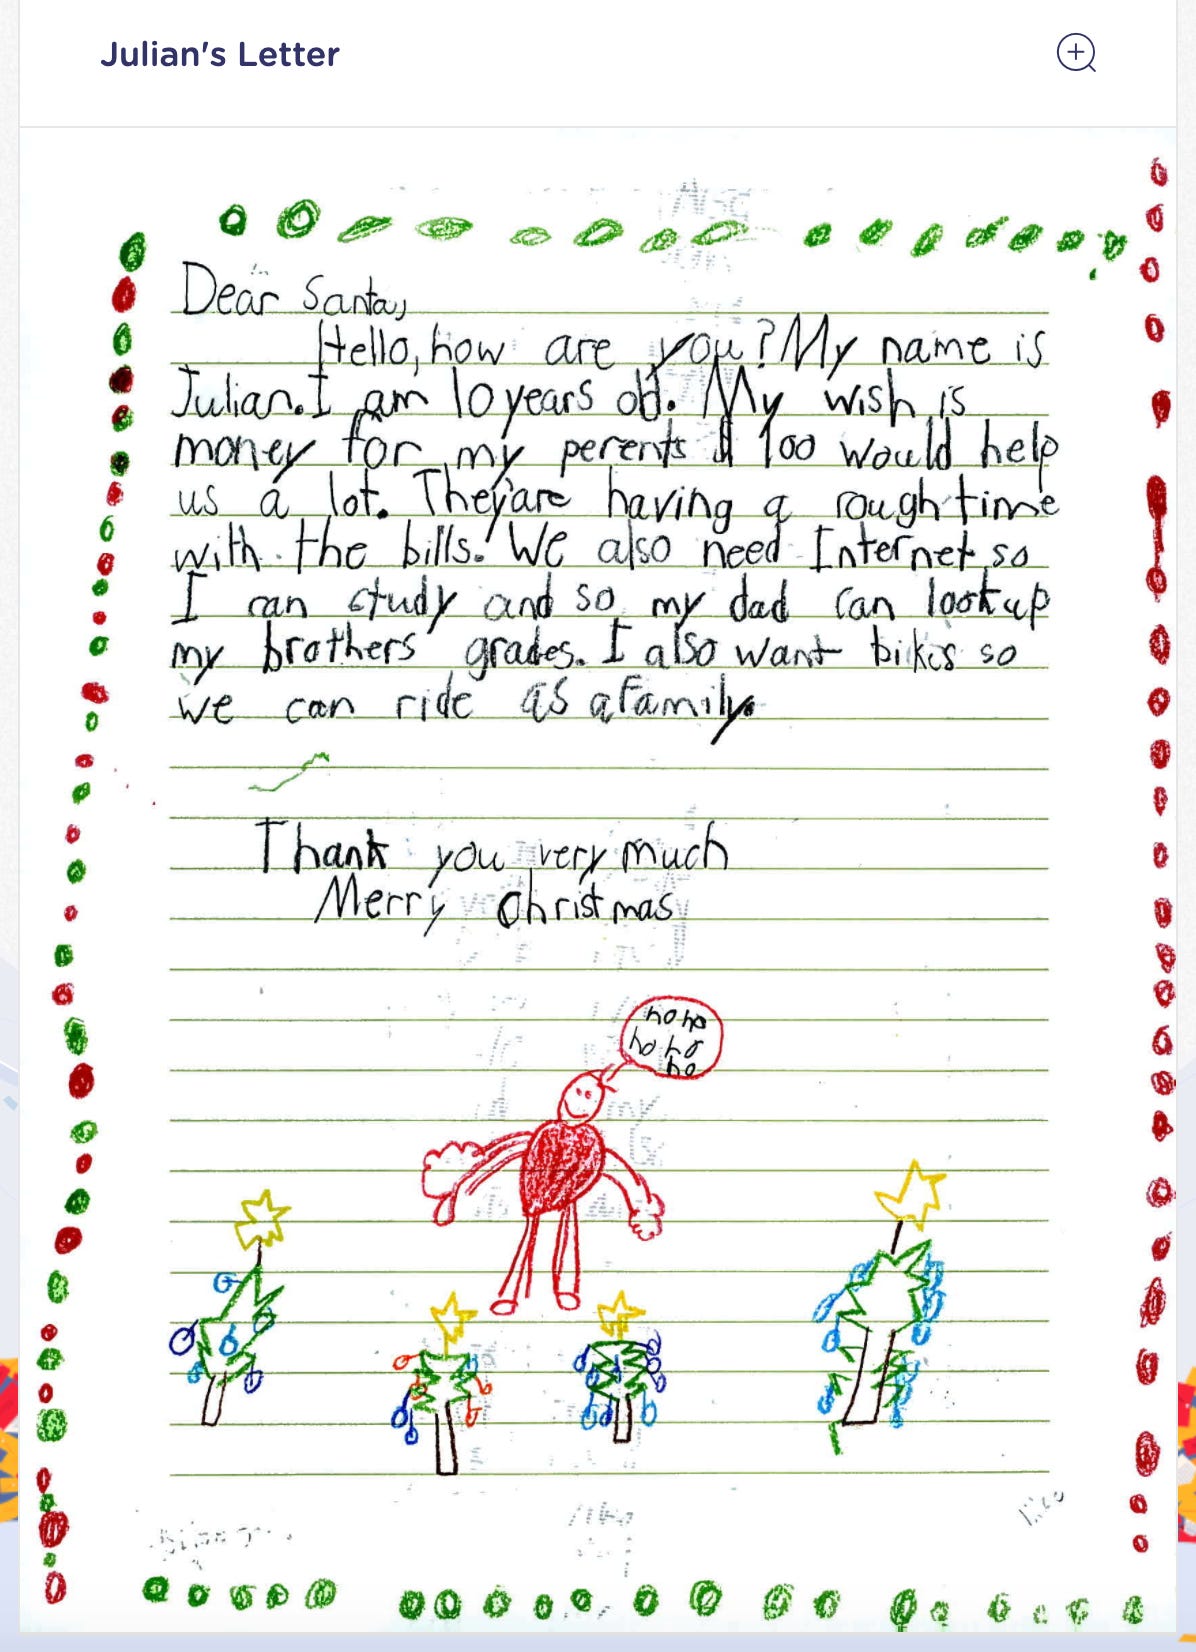 Julian's Letter
Dear Santa,
Hello, how are you? My name is
Julian. I am 10 years old. My wish is
money for my perents $ 100 would help
us a lot. They are having a rough time
with the bills. We also need Internet so
I can study and so my dad can look up
my brothers grades. I also want bikes so
we can ride as a family.
Thank you very much
Merry christmas
ho ho
ho ho
ho